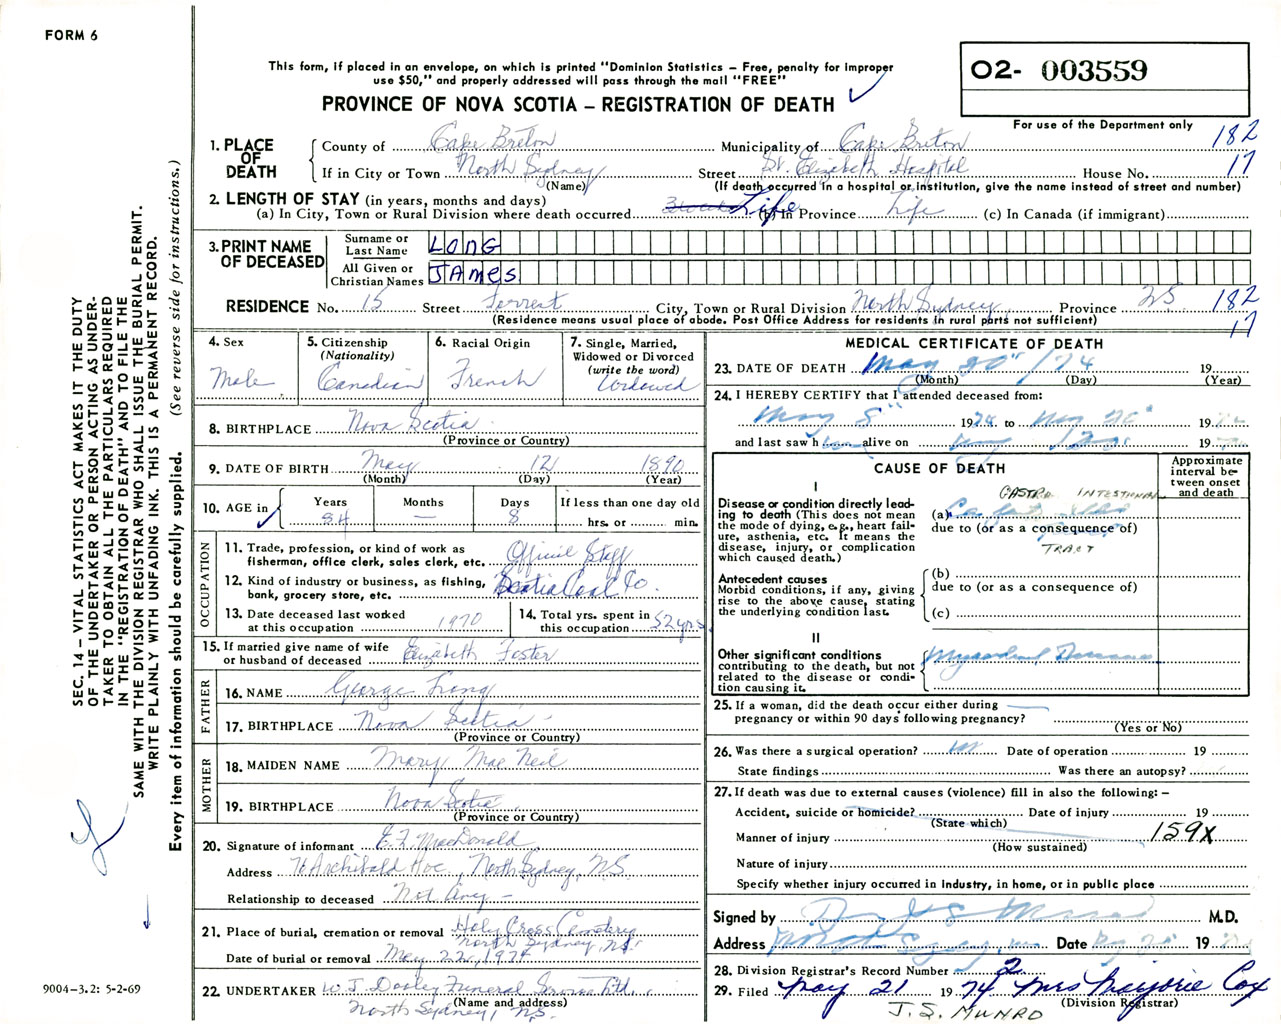 FORM 6
This form, if placed in an envelope, on which is printed "Dominion Statistics – Free, penalty for improper
use $50," and properly addressed will pass through the mail "FREE"
PROVINCE OF NOVA SCOTIA – REGISTRATION OF DEATH
O2- 003559
For use of the Department only
182
17
1. PLACE OF DEATH
County of Cape Breton Municipality of Cape Breton
If in City or Town North Sydney Street St. Elizabeth Hospital House No.
(Name) (If death occurred in a hospital or institution, give the name instead of street and number)
2. LENGTH OF STAY (in years, months and days)
(a) In City, Town or Rural Division where death occurred Life (b) In Province Life (c) In Canada (if immigrant)
3. PRINT NAME OF DECEASED
Surname or Last Name LONG
All Given or Christian Names JAMES
RESIDENCE No. 15 Street Forrest City, Town or Rural Division North Sydney Province NS 182
(Residence means usual place of abode. Post Office Address for residents in rural parts not sufficient) 17
4. Sex Male
5. Citizenship (Nationality) Canadian
6. Racial Origin French
7. Single, Married, Widowed or Divorced (write the word) Widowed
8. BIRTHPLACE Nova Scotia
(Province or Country)
9. DATE OF BIRTH May 12 1890
(Month) (Day) (Year)
10. AGE in Years 84 Months — Days 8 If less than one day old hrs. or min.
OCCUPATION
11. Trade, profession, or kind of work as
fisherman, office clerk, sales clerk, etc. Official Staff
12. Kind of industry or business, as fishing,
bank, grocery store, etc. Scotia Coal Co.
13. Date deceased last worked
at this occupation 1970
14. Total yrs. spent in
this occupation 52 yrs
15. If married give name of wife
or husband of deceased Elizabeth Foster
FATHER
16. NAME George Long
17. BIRTHPLACE Nova Scotia
(Province or Country)
MOTHER
18. MAIDEN NAME Mary Mac Neil
19. BIRTHPLACE Nova Scotia
(Province or Country)
20. Signature of informant MacDonald
Address Archibald Ave, North Sydney, NS.
Relationship to deceased Not Any –
21. Place of burial, cremation or removal Holy Cross Cemetery
North Sydney, NS.
Date of burial or removal May 22, 1974
22. UNDERTAKER W. J. Dooley Funeral Service Ltd.
(Name and address)
North Sydney, NS.
MEDICAL CERTIFICATE OF DEATH
23. DATE OF DEATH May 20" /74 19
(Month) (Day) (Year)
24. I HEREBY CERTIFY that I attended deceased from:
May 8" 1974 to May 20" 19
and last saw h alive on 19
CAUSE OF DEATH
Approximate interval between onset and death
I
GASTRO INTESTIONAL
Disease or condition directly leading
to death (This does not mean
the mode of dying, e.g., heart failure,
asthenia, etc. It means the
disease, injury, or complication
which caused death.)
(a)
due to (or as a consequence of)
TRACT
Antecedent causes
Morbid conditions, if any, giving
rise to the above cause, stating
the underlying condition last.
(b)
due to (or as a consequence of)
(c)
II
Other significant conditions
contributing to the death, but not
related to the disease or condition
causing it.
Myocardial Disease
25. If a woman, did the death occur either during
pregnancy or within 90 days following pregnancy?
(Yes or No)
26. Was there a surgical operation? Date of operation 19
State findings Was there an autopsy?
27. If death was due to external causes (violence) fill in also the following: –
Accident, suicide or homicide? Date of injury 19
(State which)
Manner of injury 159X
(How sustained)
Nature of injury
Specify whether injury occurred in industry, in home, or in public place
Signed by M.D.
Address Date 19
28. Division Registrar's Record Number 2
29. Filed May 21 1974 Mrs Marjorie Cox
(Division Registrar)
J. S. MUNRO
SEC. 14 – VITAL STATISTICS ACT MAKES IT THE DUTY
OF THE UNDERTAKER OR PERSON ACTING AS UNDER-
TAKER TO OBTAIN ALL THE PARTICULARS REQUIRED
IN THE "REGISTRATION OF DEATH" AND TO FILE THE
SAME WITH THE DIVISION REGISTRAR WHO SHALL ISSUE THE BURIAL PERMIT.
WRITE PLAINLY WITH UNFADING INK. THIS IS A PERMANENT RECORD.
Every item of information should be carefully supplied. (See reverse side for instructions.)
9004-3.2: 5-2-69